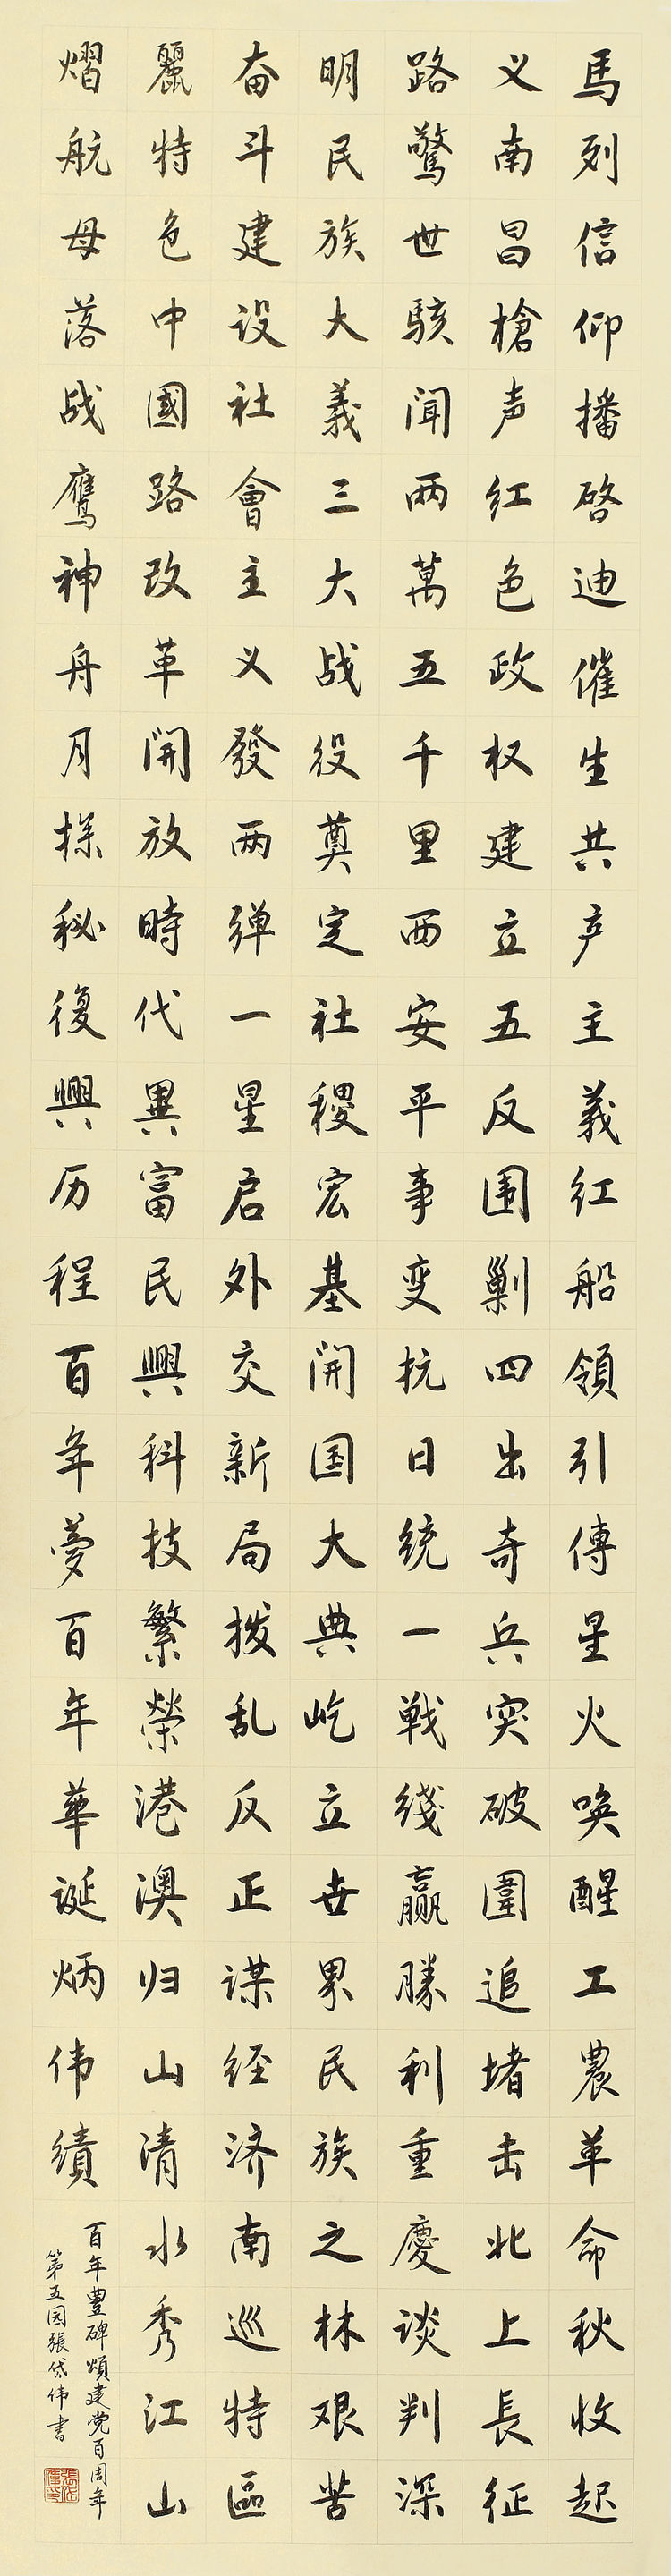 馬列信仰播啓迪催生共产主義红船領引傳星火唤醒工農革命秋收起
义南昌槍声红色政权建立五反围剿四出奇兵突破圍追堵击北上長征
路驚世駭闻两萬五千里西安平事变抗日统一戰线赢勝利重慶谈判深
明民族大義三大战役奠定社稷宏基開国大典屹立世界民族之林艰苦
奋斗建设社會主义發两弹一星启外交新局拨乱反正谋经济南巡特區
麗特色中國路改革開放時代異富民興科技繁榮港澳归山清水秀江山
熠航母落战鹰神舟月探秘復興历程百年夢百年華诞炳伟績
百年豐碑頌建党百周年
第五园張岱伟書